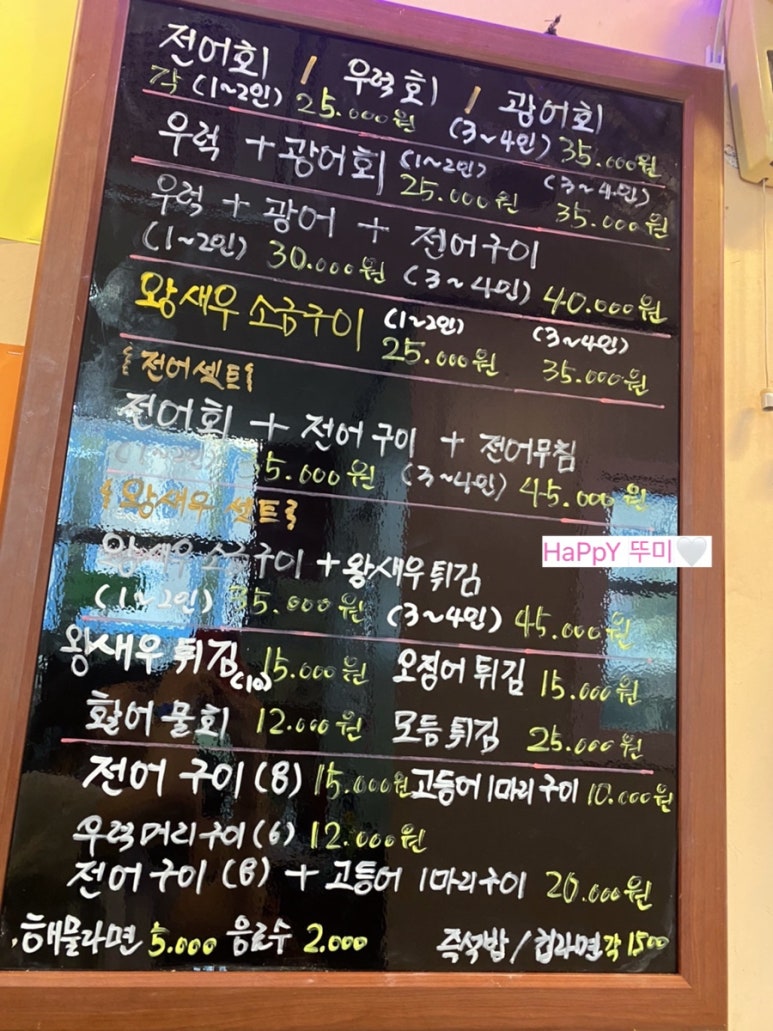 전어회 / 우럭회 / 광어회
각 (1~2인) 25.000원 (3~4인) 35.000원
우럭 + 광어회 (1~2인) 25.000원 (3~4인) 35.000원
우럭 + 광어 + 전어구이
(1~2인) 30.000원 (3~4인) 40.000원
왕새우 소금구이 (1~2인) 25.000원 (3~4인) 35.000원
{전어셋트}
전어회 + 전어구이 + 전어무침
(1~2인) 35.000원 (3~4인) 45.000원
{왕새우 셋트}
HaPpY 뚜미🤍
왕새우 소금구이 + 왕새우 튀김
(1~2인) 35.000원 (3~4인) 45.000원
왕새우 튀김 (10) 15.000원 오징어 튀김 15.000원
활어 물회 12.000원 모듬 튀김 25.000원
전어 구이 (8) 15.000원 고등어 1마리 구이 10.000원
우럭머리구이 (6) 12.000원
전어 구이 (8) + 고등어 1마리 구이 20.000원
해물라면 5.000 음료수 2.000 즉석밥 / 컵라면 각 1500